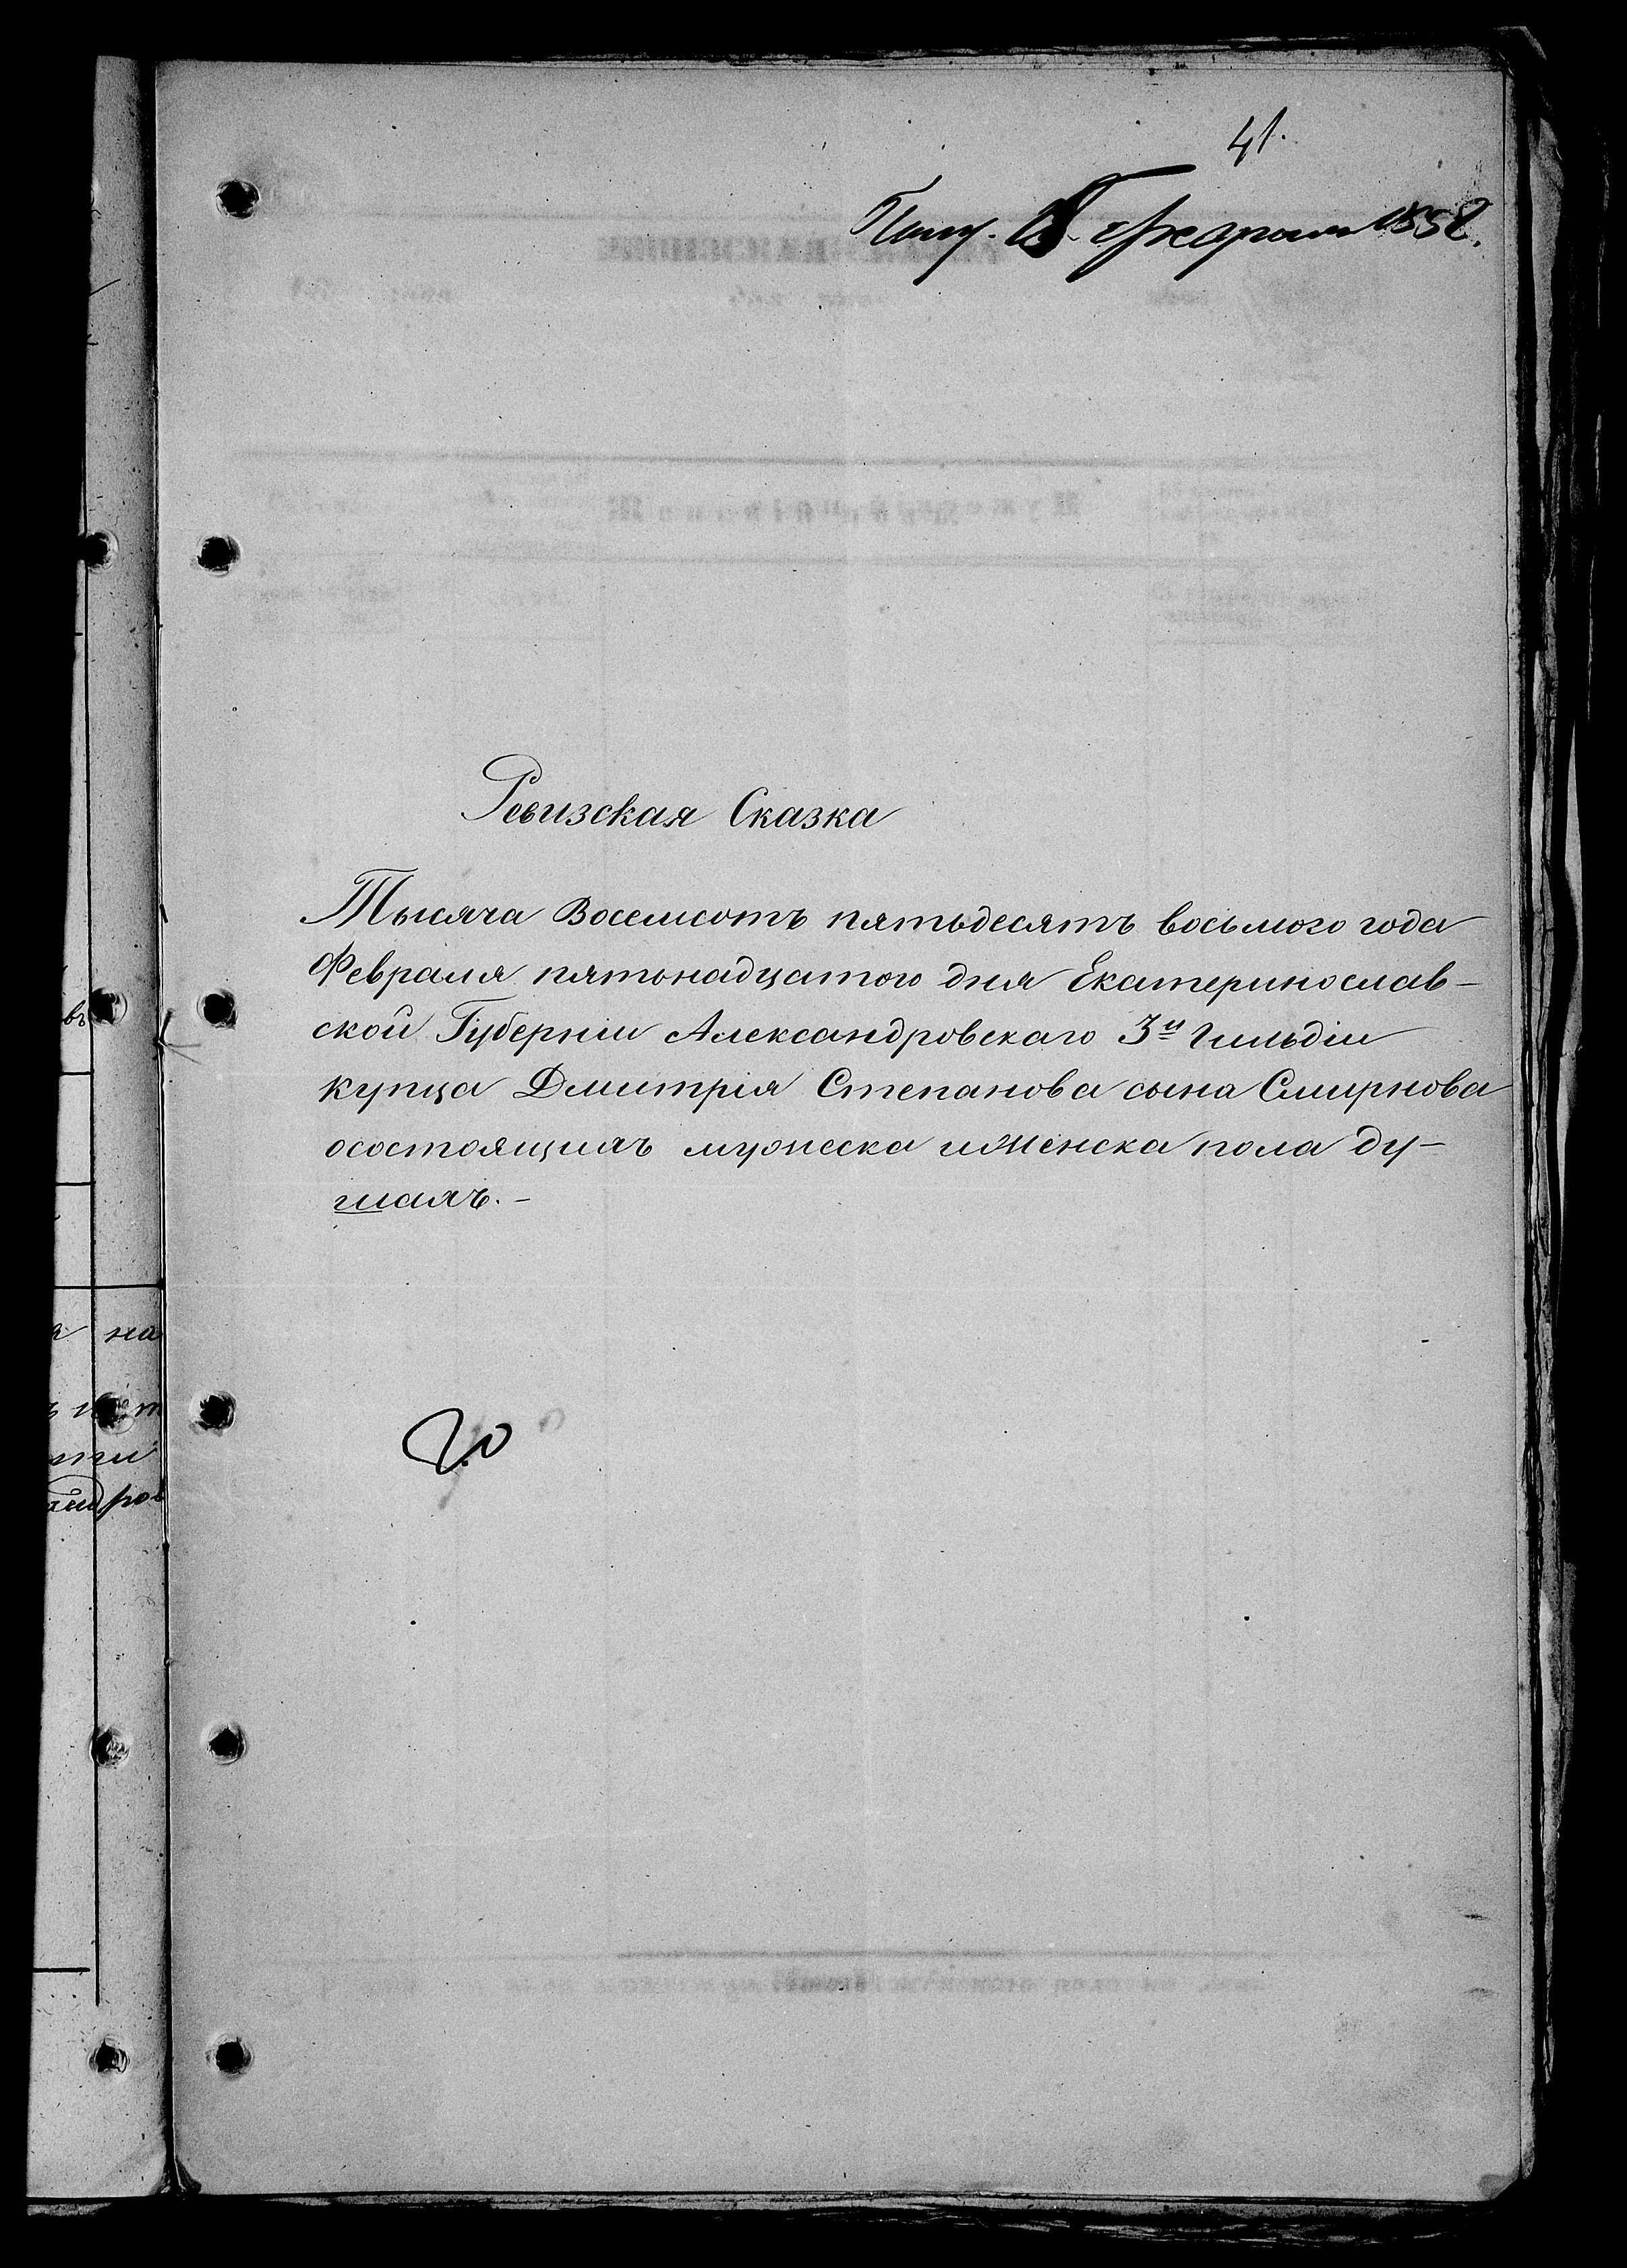 41.
Получ. 15 Февраля 1858.
Ревизская Сказка
Тысяча Восемсотъ пятьдесятъ восьмого года
Февраля пятьнадцатого дня Екатеринослав-
ской Губерніи Александровскаго 3й Гильдіи
купца Дмитрія Степанова сына Смирнова
осостоящихъ мужеска иженска пола ду-
шахъ.-
20